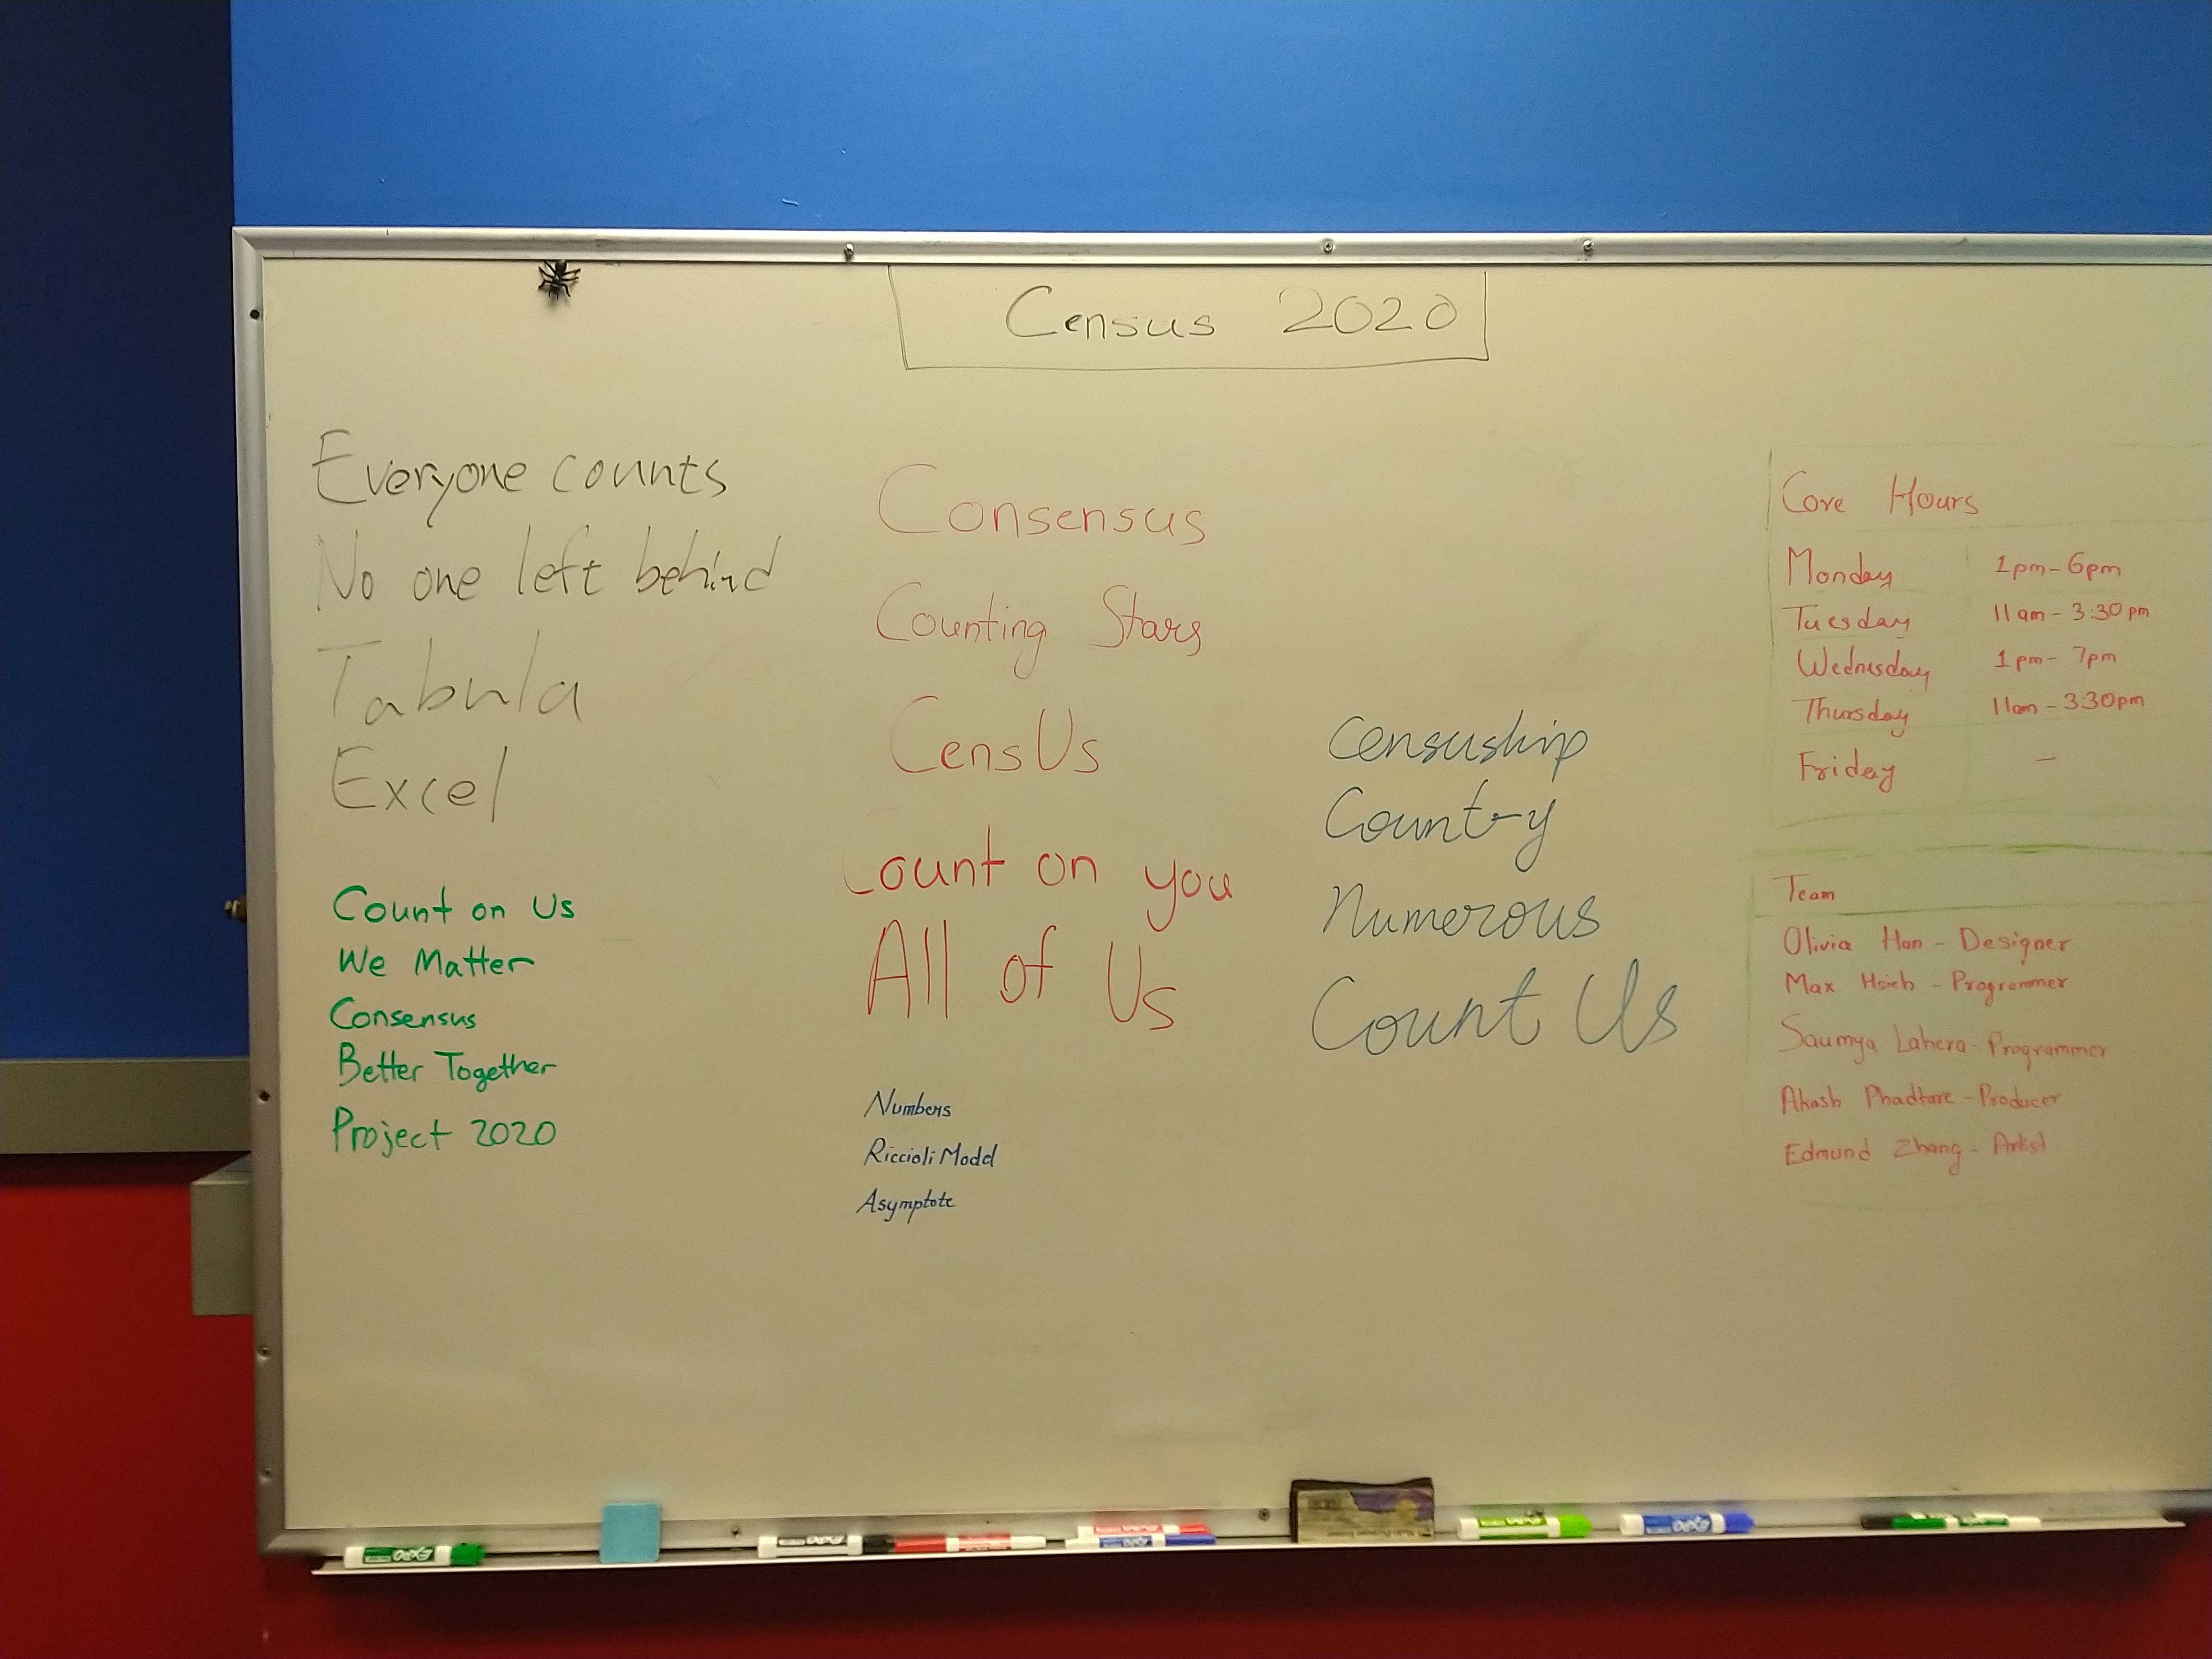 Census 2020
Everyone counts
No one left behind
Tabula
Excel
Count on Us
We Matter
Consensus
Better Together
Project 2020
Consensus
Counting Stars
CensUs
Count on you
All of Us
Numbers
Riccioli Model
Asymptote
Censuship
Count-y
Numerous
Count Us
Core Hours
Monday 1pm - 6pm
Tuesday 11am - 3:30pm
Wednesday 1pm - 7pm
Thursday 11am - 3:30pm
Friday -
Team
Olivia Han - Designer
Max Hsieh - Programmer
Saumya Lahera - Programmer
Akash Phadtare - Producer
Edmund Zhang - Artist
EXPO
EXPO
EXPO
EXPO